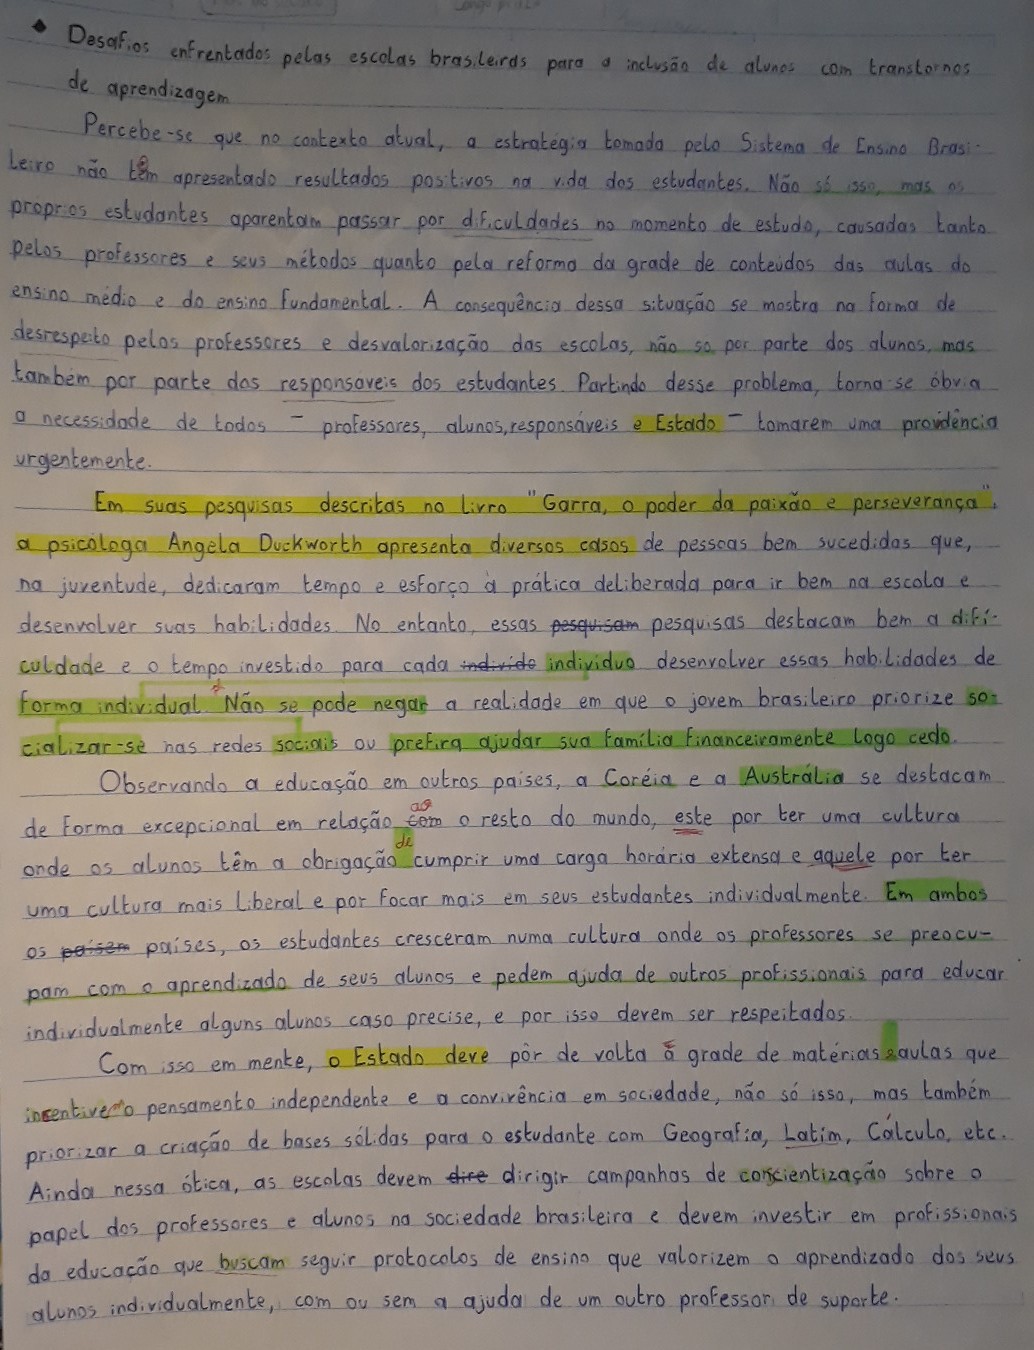 Desafios enfrentados pelas escolas brasileiras para a inclusão de alunos com transtornos
de aprendizagem
Percebe-se que no contexto atual, a estratégia tomada pelo Sistema de Ensino Brasi-
leiro não têm apresentado resultados positivos na vida dos estudantes. Não só isso, mas os
proprios estudantes aparentam passar por dificuldades no momento de estudo, causadas tanto
pelos professores e seus métodos quanto pela reforma da grade de conteúdos das aulas do
ensino médio e do ensino fundamental. A consequência dessa situação se mostra na forma de
desrespeito pelos professores e desvalorização das escolas, não so por parte dos alunos, mas
também por parte dos responsáveis dos estudantes. Partindo desse problema, torna-se óbvia
a necessidade de todos - professores, alunos, responsáveis e Estado - tomarem uma providência
urgentemente.
Em suas pesquisas descritas no livro "Garra, o poder da paixão e perseverança",
a psicóloga Angela Duckworth apresenta diversos casos de pessoas bem sucedidas que,
na juventude, dedicaram tempo e esforço à prática deliberada para ir bem na escola e
desenvolver suas habilidades. No entanto, essas pesquisam pesquisas destacam bem a difi-
culdade e o tempo investido para cada indivído indivíduo desenvolver essas habilidades de
forma individual. Não se pode negar a realidade em que o jovem brasileiro priorize so-
cializar-se nas redes sociais ou prefira ajudar sua família financeiramente logo cedo.
Observando a educação em outros países, a Coréia e a Austrália se destacam
de forma excepcional em relação com ao o resto do mundo, este por ter uma cultura
onde os alunos têm a obrigação de cumprir uma carga horária extensa e aquele por ter
uma cultura mais liberal e por focar mais em seus estudantes individualmente. Em ambos
os paísem países, os estudantes cresceram numa cultura onde os professores se preocu-
pam com o aprendizado de seus alunos e pedem ajuda de outros profissionais para educar
individualmente alguns alunos caso precise, e por isso devem ser respeitados.
Com isso em mente, o Estado deve pôr de volta à grade de matérias aulas que
incentive o pensamento independente e a convivência em sociedade, não só isso, mas também
priorizar a criação de bases sólidas para o estudante com Geografia, Latim, Cálculo, etc.
Ainda nessa ótica, as escolas devem dire dirigir campanhas de conscientização sobre o
papel dos professores e alunos na sociedade brasileira e devem investir em profissionais
da educação que buscam seguir protocolos de ensino que valorizem o aprendizado dos seus
alunos individualmente, com ou sem a ajuda de um outro professor de suporte.